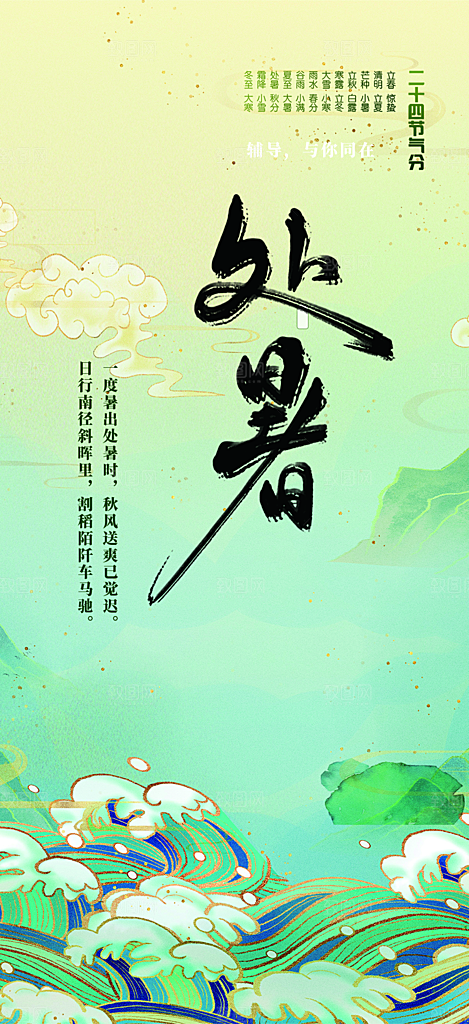 二十四节气分
立春 惊蛰
清明 立夏
芒种 小暑
立秋 白露
寒露 立冬
大雪 小寒
雨水 春分
谷雨 小满
夏至 大暑
处暑 秋分
霜降 小雪
冬至 大寒
辅导，与你同在
处暑
一度暑出处暑时，秋风送爽已觉迟。
日行南径斜晖里，割稻陌阡车马驰。